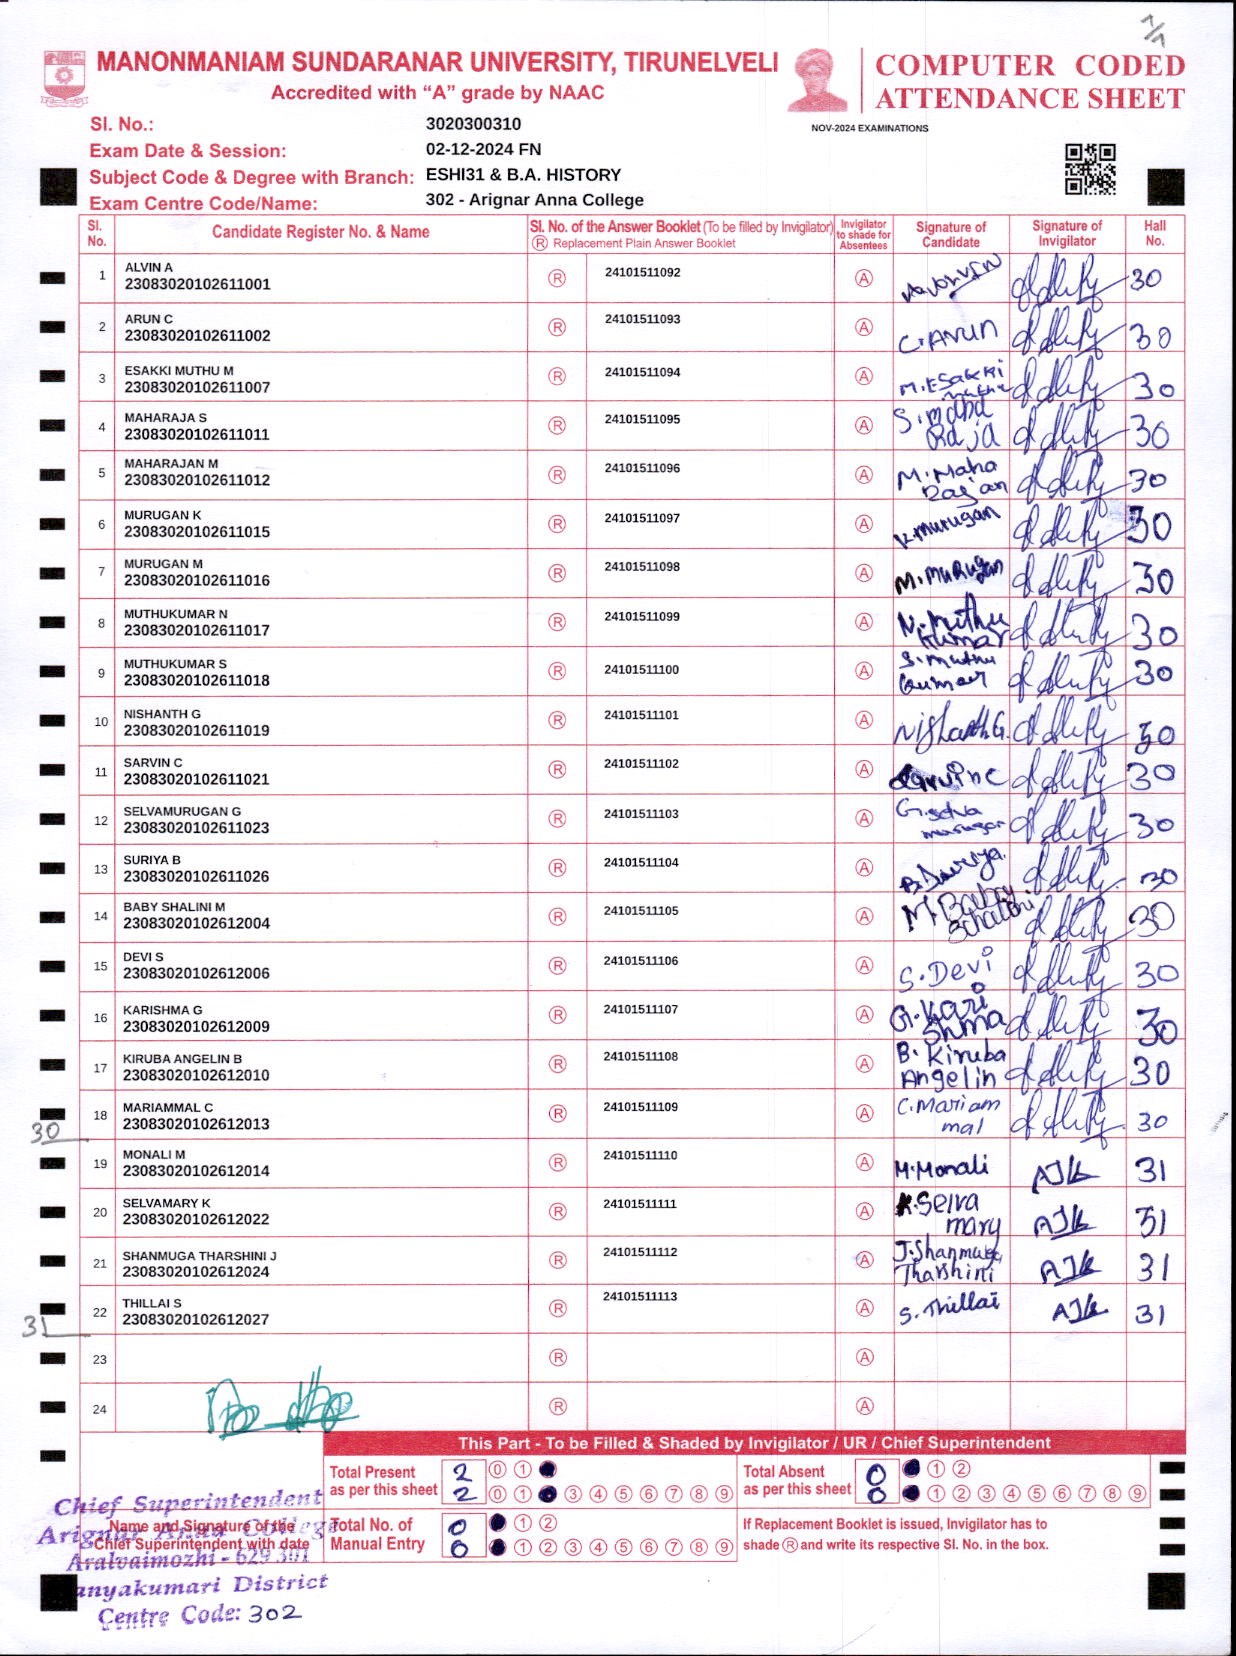 1/1
MANONMANIAM SUNDARANAR UNIVERSITY, TIRUNELVELI
Accredited with “A” grade by NAAC
COMPUTER CODED
ATTENDANCE SHEET
NOV-2024 EXAMINATIONS
Sl. No.: 3020300310
Exam Date & Session: 02-12-2024 FN
Subject Code & Degree with Branch: ESHI31 & B.A. HISTORY
Exam Centre Code/Name: 302 - Arignar Anna College
Sl. No. Candidate Register No. & Name Sl. No. of the Answer Booklet (To be filled by Invigilator) Ⓡ Replacement Plain Answer Booklet Invigilator to shade for Absentees Signature of Candidate Signature of Invigilator Hall No.
1 ALVIN A 23083020102611001 Ⓡ 24101511092 Ⓐ 30
2 ARUN C 23083020102611002 Ⓡ 24101511093 Ⓐ C.ARUN 30
3 ESAKKI MUTHU M 23083020102611007 Ⓡ 24101511094 Ⓐ M.Esakki muthu 30
4 MAHARAJA S 23083020102611011 Ⓡ 24101511095 Ⓐ S.maha Raja 30
5 MAHARAJAN M 23083020102611012 Ⓡ 24101511096 Ⓐ M.Maha Rajan 30
6 MURUGAN K 23083020102611015 Ⓡ 24101511097 Ⓐ K.Murugan 30
7 MURUGAN M 23083020102611016 Ⓡ 24101511098 Ⓐ M.MuRugan 30
8 MUTHUKUMAR N 23083020102611017 Ⓡ 24101511099 Ⓐ N.Muthu kumar 30
9 MUTHUKUMAR S 23083020102611018 Ⓡ 24101511100 Ⓐ S.muthu kumar 30
10 NISHANTH G 23083020102611019 Ⓡ 24101511101 Ⓐ NishanthG. 30
11 SARVIN C 23083020102611021 Ⓡ 24101511102 Ⓐ 30
12 SELVAMURUGAN G 23083020102611023 Ⓡ 24101511103 Ⓐ G.selva murugan 30
13 SURIYA B 23083020102611026 Ⓡ 24101511104 Ⓐ B.Suriya. 30
14 BABY SHALINI M 23083020102612004 Ⓡ 24101511105 Ⓐ M.Baby Shalini 30
15 DEVI S 23083020102612006 Ⓡ 24101511106 Ⓐ S.Devi 30
16 KARISHMA G 23083020102612009 Ⓡ 24101511107 Ⓐ G.Kari Shma 30
17 KIRUBA ANGELIN B 23083020102612010 Ⓡ 24101511108 Ⓐ B.Kiruba Angelin 30
18 MARIAMMAL C 23083020102612013 Ⓡ 24101511109 Ⓐ C.Mariam mal 30
30
19 MONALI M 23083020102612014 Ⓡ 24101511110 Ⓐ M.Monali 31
20 SELVAMARY K 23083020102612022 Ⓡ 24101511111 Ⓐ K.Selva mary 31
21 SHANMUGA THARSHINI J 23083020102612024 Ⓡ 24101511112 Ⓐ J.Shanmuga Tharshini 31
22 THILLAI S 23083020102612027 Ⓡ 24101511113 Ⓐ S.Thillai 31
31
23 Ⓡ Ⓐ
24 Ⓡ Ⓐ
This Part - To be Filled & Shaded by Invigilator / UR / Chief Superintendent
Total Present as per this sheet
2 ⓪ ①
2 ⓪ ① ③ ④ ⑤ ⑥ ⑦ ⑧ ⑨
Total Absent as per this sheet
0 ① ②
0 ① ② ③ ④ ⑤ ⑥ ⑦ ⑧ ⑨
Total No. of Manual Entry
0 ① ②
0 ① ② ③ ④ ⑤ ⑥ ⑦ ⑧ ⑨
If Replacement Booklet is issued, Invigilator has to
shade Ⓡ and write its respective Sl. No. in the box.
Name and Signature of the
Chief Superintendent with date
Chief Superintendent
Arignar Anna College
Aralvaimozhi - 629 301
anyakumari District
Centre Code: 302